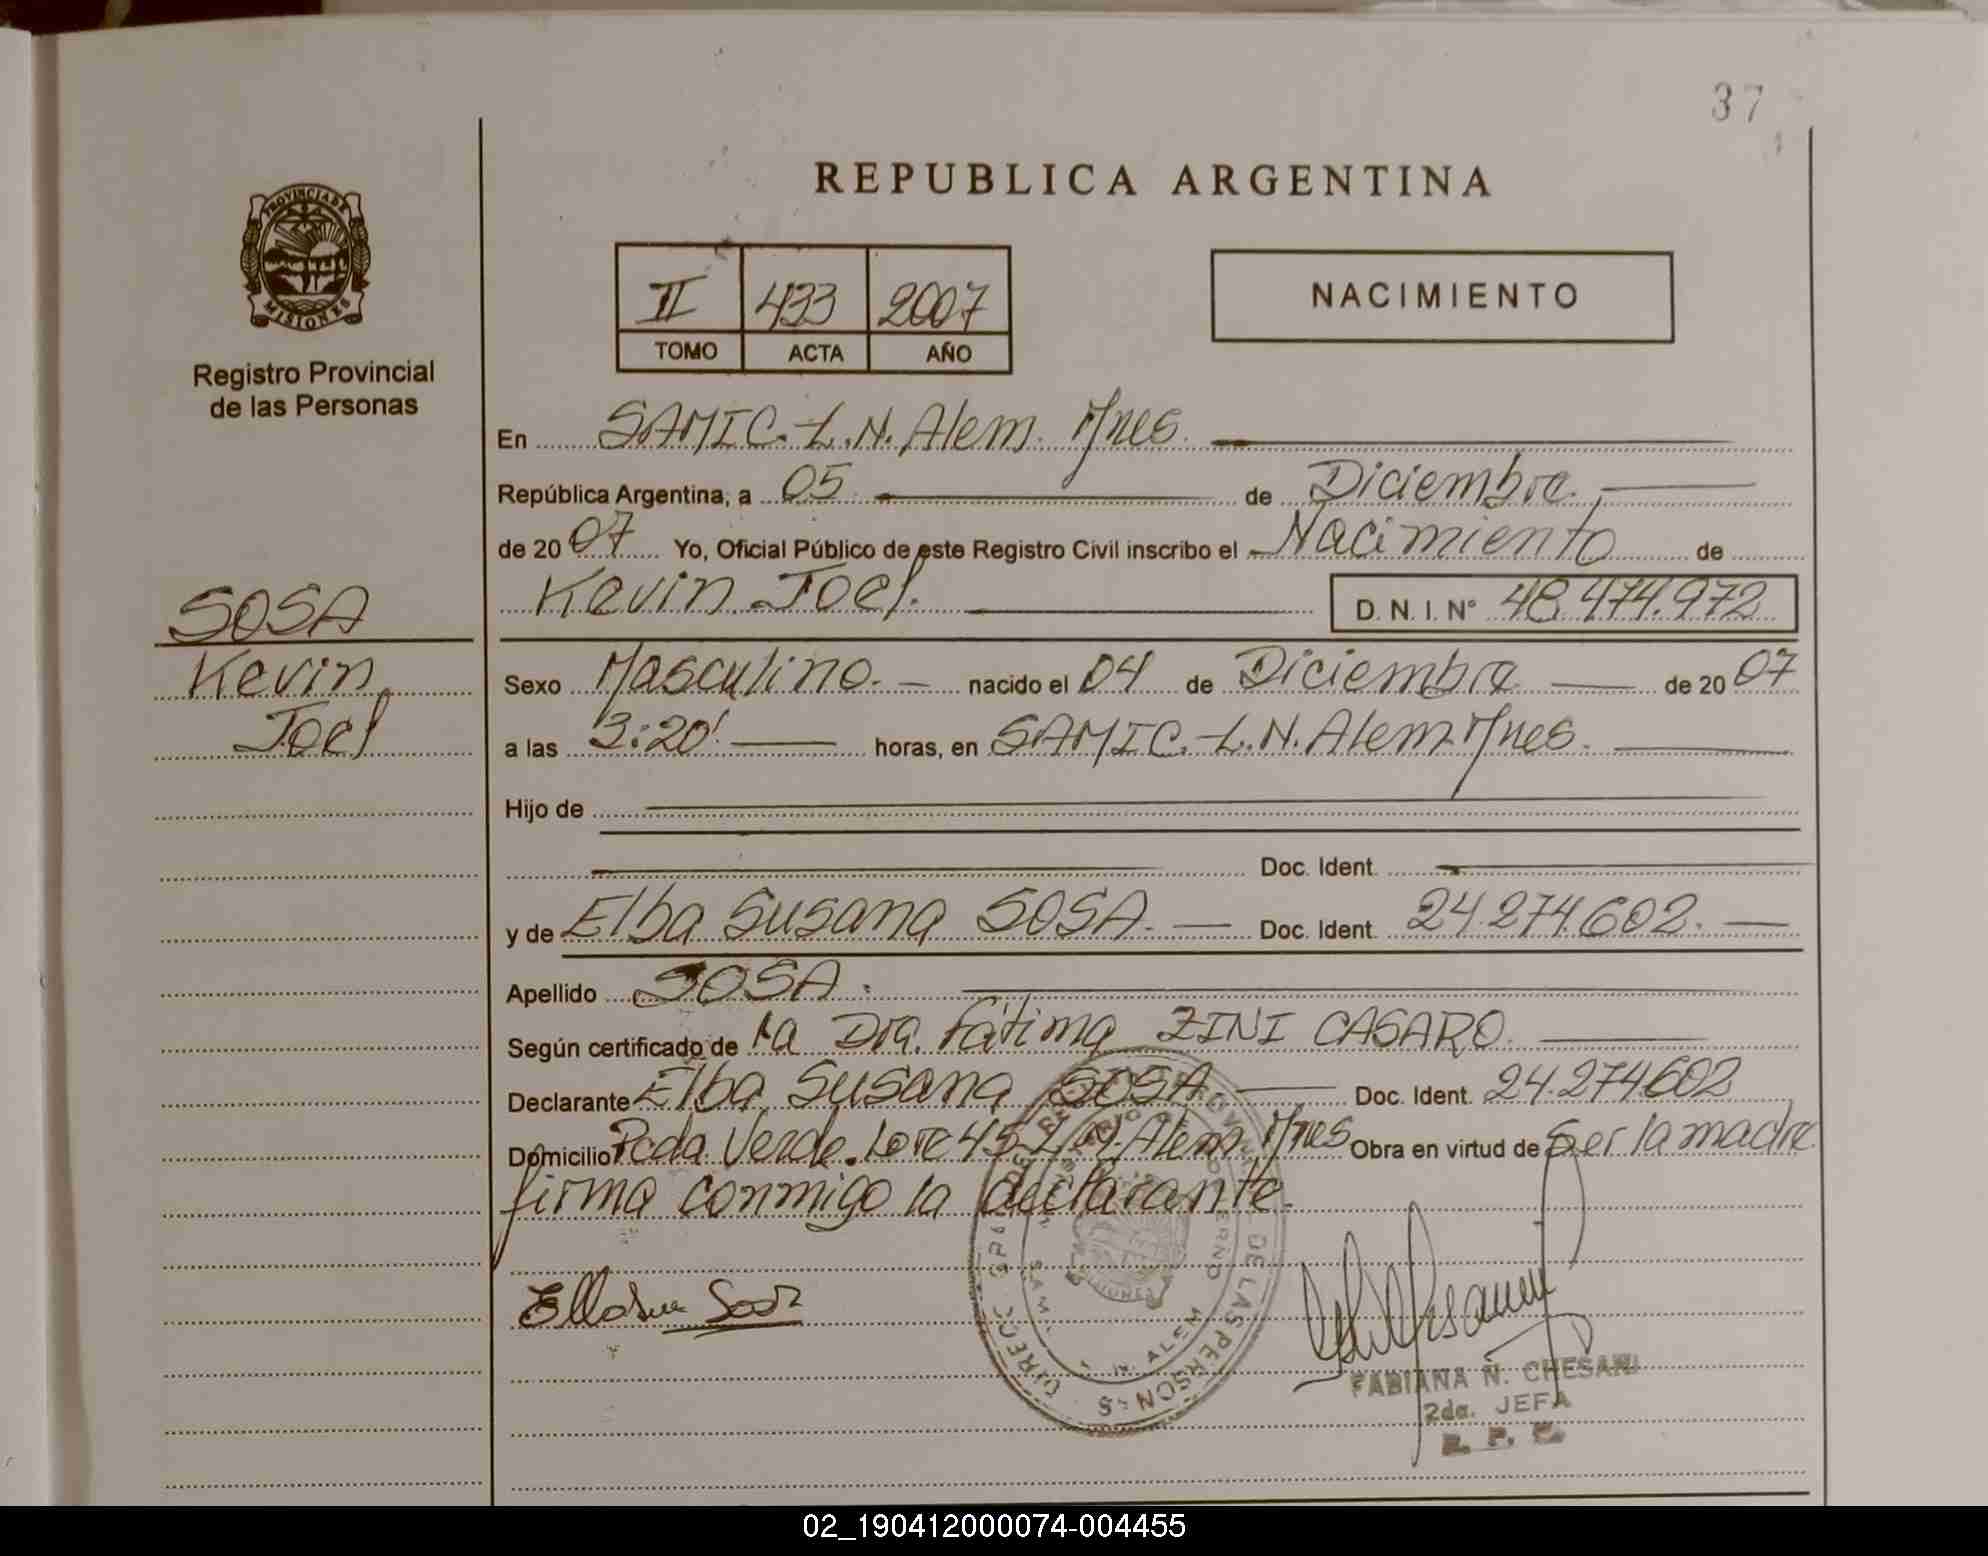 37
REPUBLICA ARGENTINA
PROVINCIA DE
MISIONES
II 433 2007
TOMO ACTA AÑO
NACIMIENTO
Registro Provincial
de las Personas
En SAMIC. L.N. Alem. Mnes.
República Argentina, a 05 de Diciembre.
de 2007 Yo, Oficial Público de este Registro Civil inscribo el Nacimiento de
Kevin Joel. D. N. I. N° 48.474.972
SOSA
Kevin
Joel
Sexo Masculino. nacido el 04 de Diciembre de 2007
a las 3:20' horas, en SAMIC. L.N. Alem Mnes.
Hijo de
Doc. Ident.
y de Elba Susana SOSA. Doc. Ident. 24.274.602.
Apellido SOSA.
Según certificado de la Dra. Fátima ZINI CASARO.
Declarante Elba Susana SOSA Doc. Ident. 24.274.602
Domicilio Pcda. Verde. Lote 45 L.N. Alem. Mnes Obra en virtud de ser la madre
firma conmigo la declarante.
DE LAS PERSONAS
ALEM
FABIANA N. CHESANI
2da. JEFA
R. P. C.
02_190412000074-004455